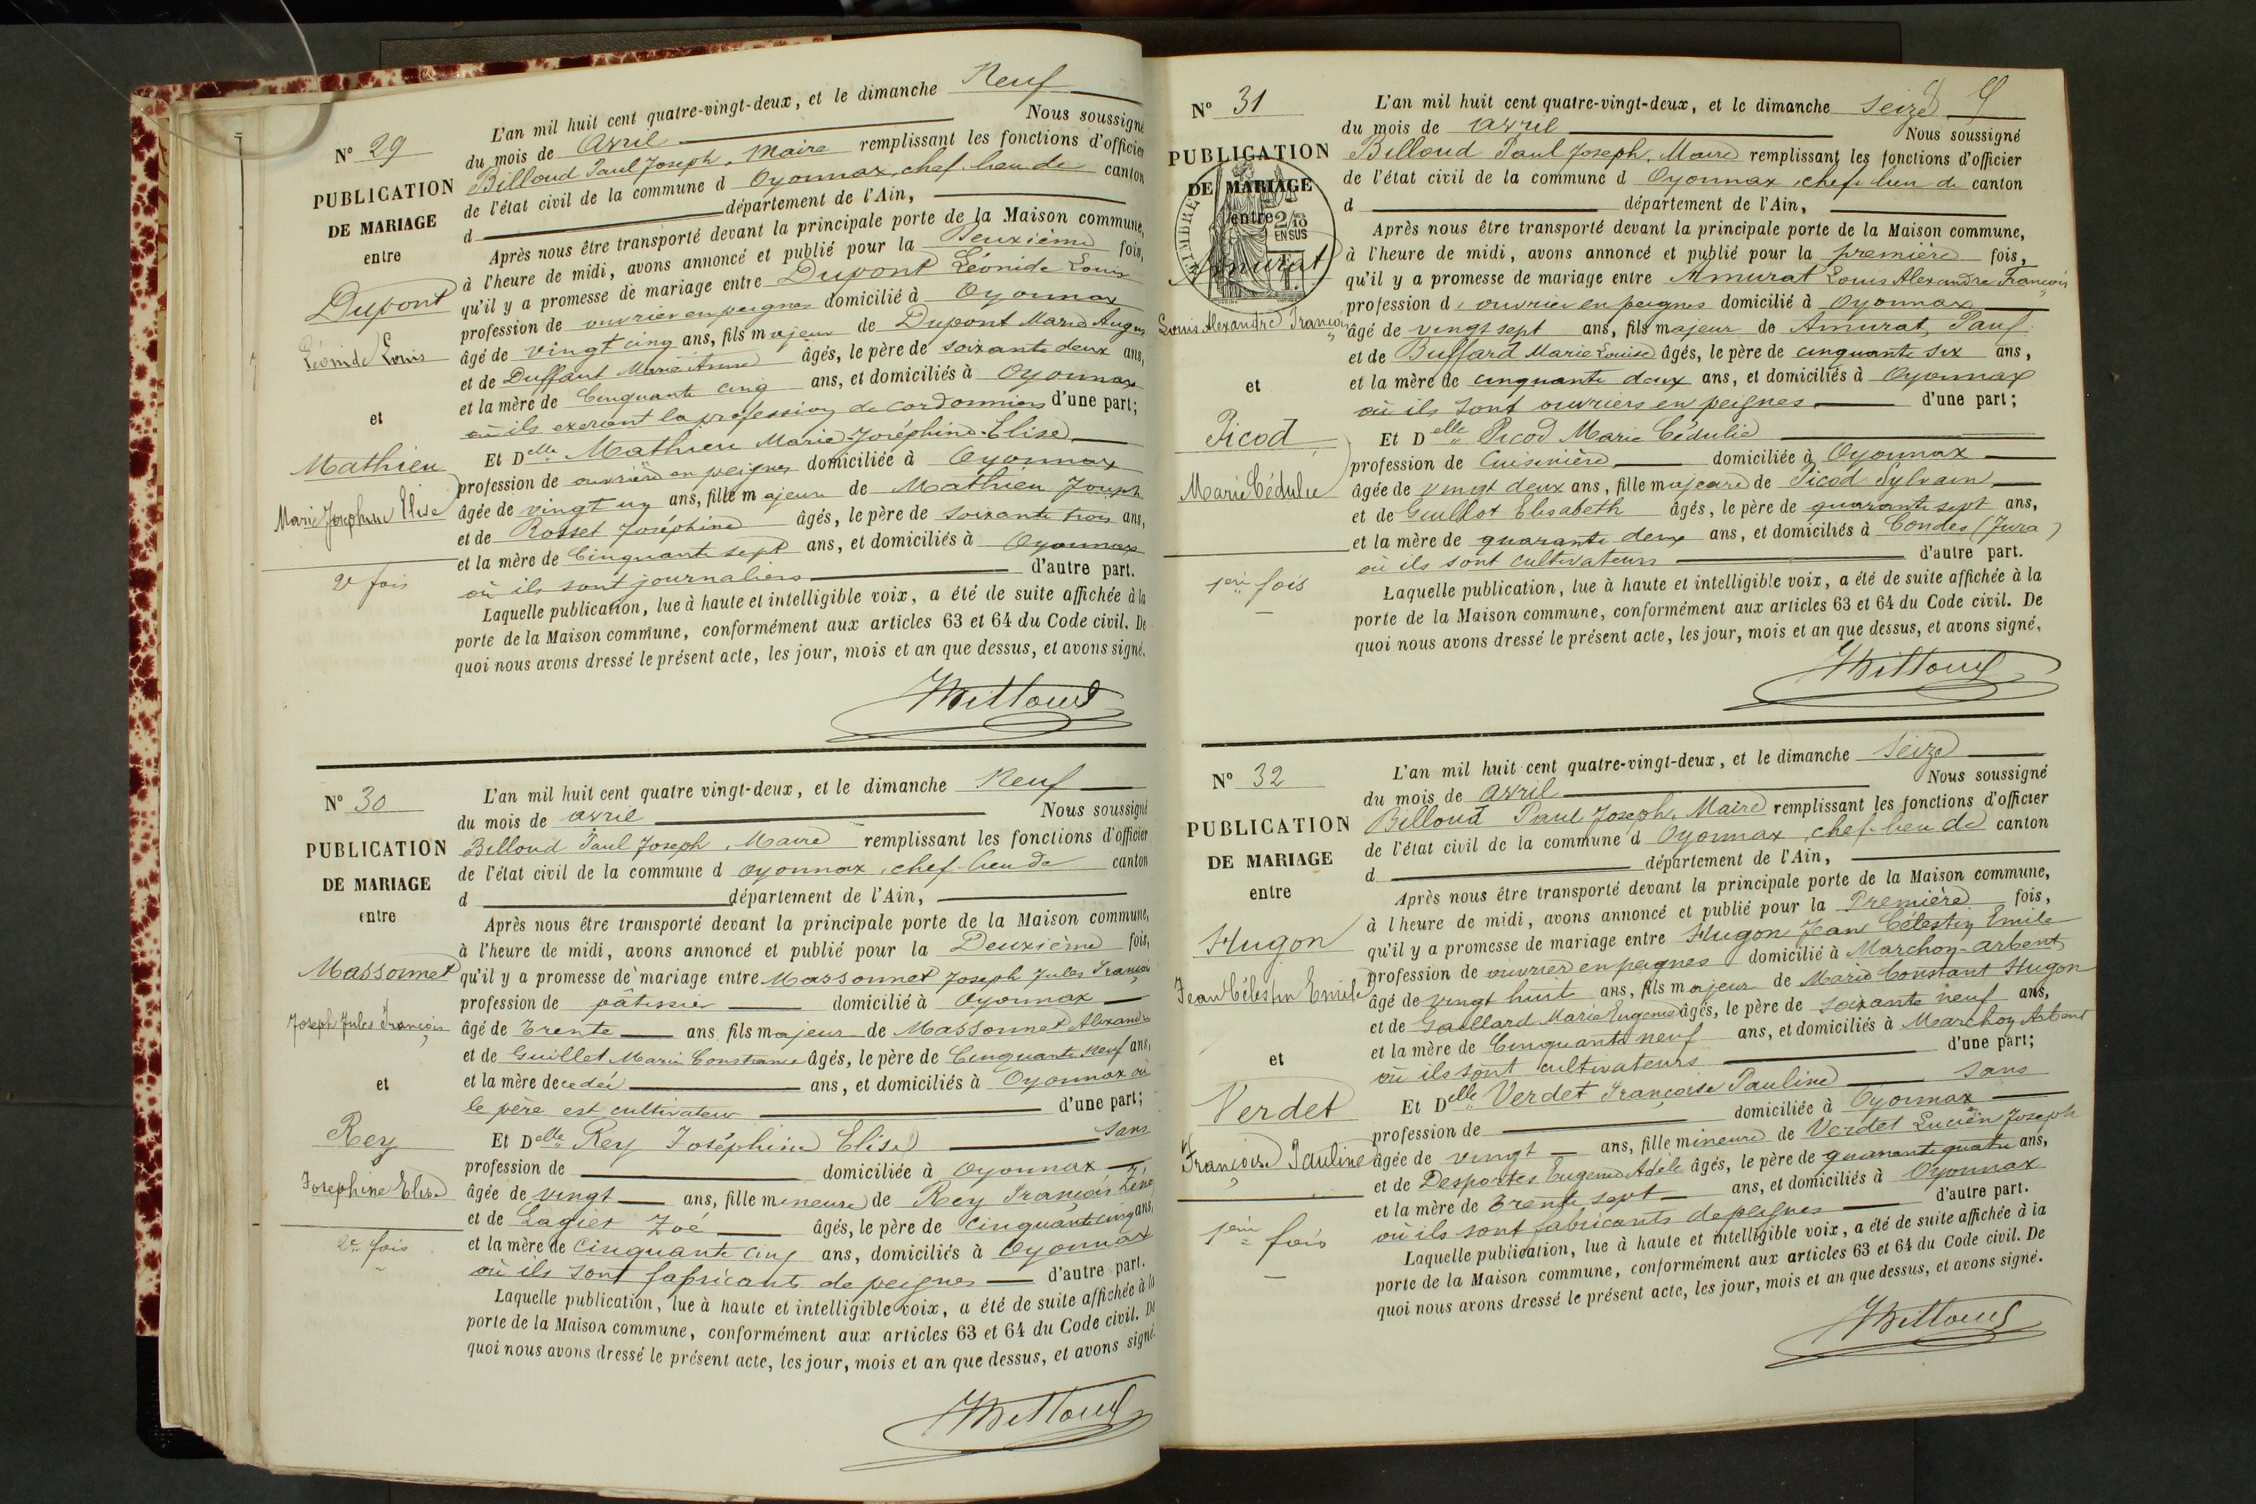 N° 29
PUBLICATION
DE MARIAGE
entre
Dupont
Léonide Louis
et
Mathieu
Marie Josephine Elise
2e fois
L'an mil huit cent quatre-vingt-deux, et le dimanche Neuf
du mois de Avril Nous soussigné
Billoud Paul Joseph, Maire remplissant les fonctions d'officier
de l'état civil de la commune d Oyonnax, chef-lieu de canton
d département de l'Ain,
Après nous être transporté devant la principale porte de la Maison commune,
à l'heure de midi, avons annoncé et publié pour la Deuxième fois,
qu'il y a promesse de mariage entre Dupont Léonide Louis
profession de ouvrier en peignes domicilié à Oyonnax
âgé de vingt cinq ans, fils majeur de Dupont Marie
et de Duffaut Marie Anne âgés, le père de soixante deux ans,
et la mère de Cinquante cinq ans, et domiciliés à Oyonnax
où ils exercent la profession de cordonniers d'une part;
Et Delle Mathieu Marie-Joséphine-Elise
profession de ouvrière en peignes domiciliée à Oyonnax
âgée de vingt un ans, fille majeure de Mathieu Joseph
et de Rosset Joséphine âgés, le père de soixante trois ans,
et la mère de Cinquante sept ans, et domiciliés à Oyonnax
où ils sont journaliers d'autre part.
Laquelle publication, lue à haute et intelligible voix, a été de suite affichée à la
porte de la Maison commune, conformément aux articles 63 et 64 du Code civil. De
quoi nous avons dressé le présent acte, les jour, mois et an que dessus, et avons signé.
Billoud
N° 30
PUBLICATION
DE MARIAGE
entre
Massonnet
Joseph Jules François
et
Rey
Josephine Elise
2e fois
L'an mil huit cent quatre vingt-deux, et le dimanche Neuf
du mois de avril Nous soussigné
Billoud Paul Joseph, Maire remplissant les fonctions d'officier
de l'état civil de la commune d Oyonnax, chef-lieu de canton
d département de l'Ain,
Après nous être transporté devant la principale porte de la Maison commune,
à l'heure de midi, avons annoncé et publié pour la Deuxième fois,
qu'il y a promesse de mariage entre Massonnet Joseph Jules François
profession de pâtissier domicilié à Oyonnax
âgé de Trente ans, fils majeur de Massonnet Alexandre
et de Guillet Marie Constance âgés, le père de Cinquante neuf ans,
et la mère decedée ans, et domiciliés à Oyonnax où
le père est cultivateur d'une part;
Et Delle Rey Joséphine Elise sans
profession de domiciliée à Oyonnax
âgée de vingt ans, fille mineure de Rey François
et de Lagier Zoé âgés, le père de cinquante cinq ans,
et la mère de Cinquante cinq ans, domiciliés à Oyonnax
où ils sont fabricants de peignes d'autre part.
Laquelle publication, lue à haute et intelligible voix, a été de suite affichée à la
porte de la Maison commune, conformément aux articles 63 et 64 du Code civil. De
quoi nous avons dressé le présent acte, les jour, mois et an que dessus, et avons signé.
Billoud
N° 31
PUBLICATION
DE MARIAGE
entre
TIMBRE
2/10
EN SUS
Amurat
Louis Alexandre François
et
Picod
Marie Cédulie
1ère fois
L'an mil huit cent quatre-vingt-deux, et le dimanche seize
du mois de avril Nous soussigné
Billoud Paul Joseph, Maire remplissant les fonctions d'officier
de l'état civil de la commune d Oyonnax, chef-lieu de canton
d département de l'Ain,
Après nous être transporté devant la principale porte de la Maison commune,
à l'heure de midi, avons annoncé et publié pour la première fois,
qu'il y a promesse de mariage entre Amurat Louis Alexandre François
profession d'ouvrier en peignes domicilié à Oyonnax
âgé de vingt sept ans, fils majeur de Amurat, Paul
et de Buffard Marie Louise âgés, le père de cinquante six ans,
et la mère de cinquante deux ans, et domiciliés à Oyonnax
où ils sont ouvriers en peignes d'une part;
Et Delle Picod Marie Cédulie
profession de Cuisinière domiciliée à Oyonnax
âgée de vingt deux ans, fille majeure de Picod Sylvain
et de Guillot Elisabeth âgés, le père de quarante sept ans,
et la mère de quarante deux ans, et domiciliés à Condes (Jura)
où ils sont cultivateurs d'autre part.
Laquelle publication, lue à haute et intelligible voix, a été de suite affichée à la
porte de la Maison commune, conformément aux articles 63 et 64 du Code civil. De
quoi nous avons dressé le présent acte, les jour, mois et an que dessus, et avons signé.
Billoud
N° 32
PUBLICATION
DE MARIAGE
entre
Hugon
Jean Célestin Emile
et
Verdet
Françoise Pauline
1ère fois
L'an mil huit cent quatre-vingt-deux, et le dimanche seize
du mois de avril Nous soussigné
Billoud Paul Joseph, Maire remplissant les fonctions d'officier
de l'état civil de la commune d Oyonnax, chef-lieu de canton
d département de l'Ain,
Après nous être transporté devant la principale porte de la Maison commune,
à l'heure de midi, avons annoncé et publié pour la Première fois,
qu'il y a promesse de mariage entre Hugon Jean Célestin Emile
profession de ouvrier en peignes domicilié à Marchon-arbent
âgé de vingt huit ans, fils majeur de Marie Constant Hugon
et de Gaillard Marie Eugenie âgés, le père de soixante neuf ans,
et la mère de Cinquante neuf ans, et domiciliés à Marchon Arbent
où ils sont cultivateurs d'une part;
Et Delle Verdet Françoise Pauline sans
profession de domiciliée à Oyonnax
âgée de vingt ans, fille mineure de Verdet Lucien Joseph
et de Desportes Eugenie Adèle âgés, le père de quarante quatre ans,
et la mère de Trente sept ans, et domiciliés à Oyonnax
où ils sont fabricants de peignes d'autre part.
Laquelle publication, lue à haute et intelligible voix, a été de suite affichée à la
porte de la Maison commune, conformément aux articles 63 et 64 du Code civil. De
quoi nous avons dressé le présent acte, les jour, mois et an que dessus, et avons signé.
Billoud